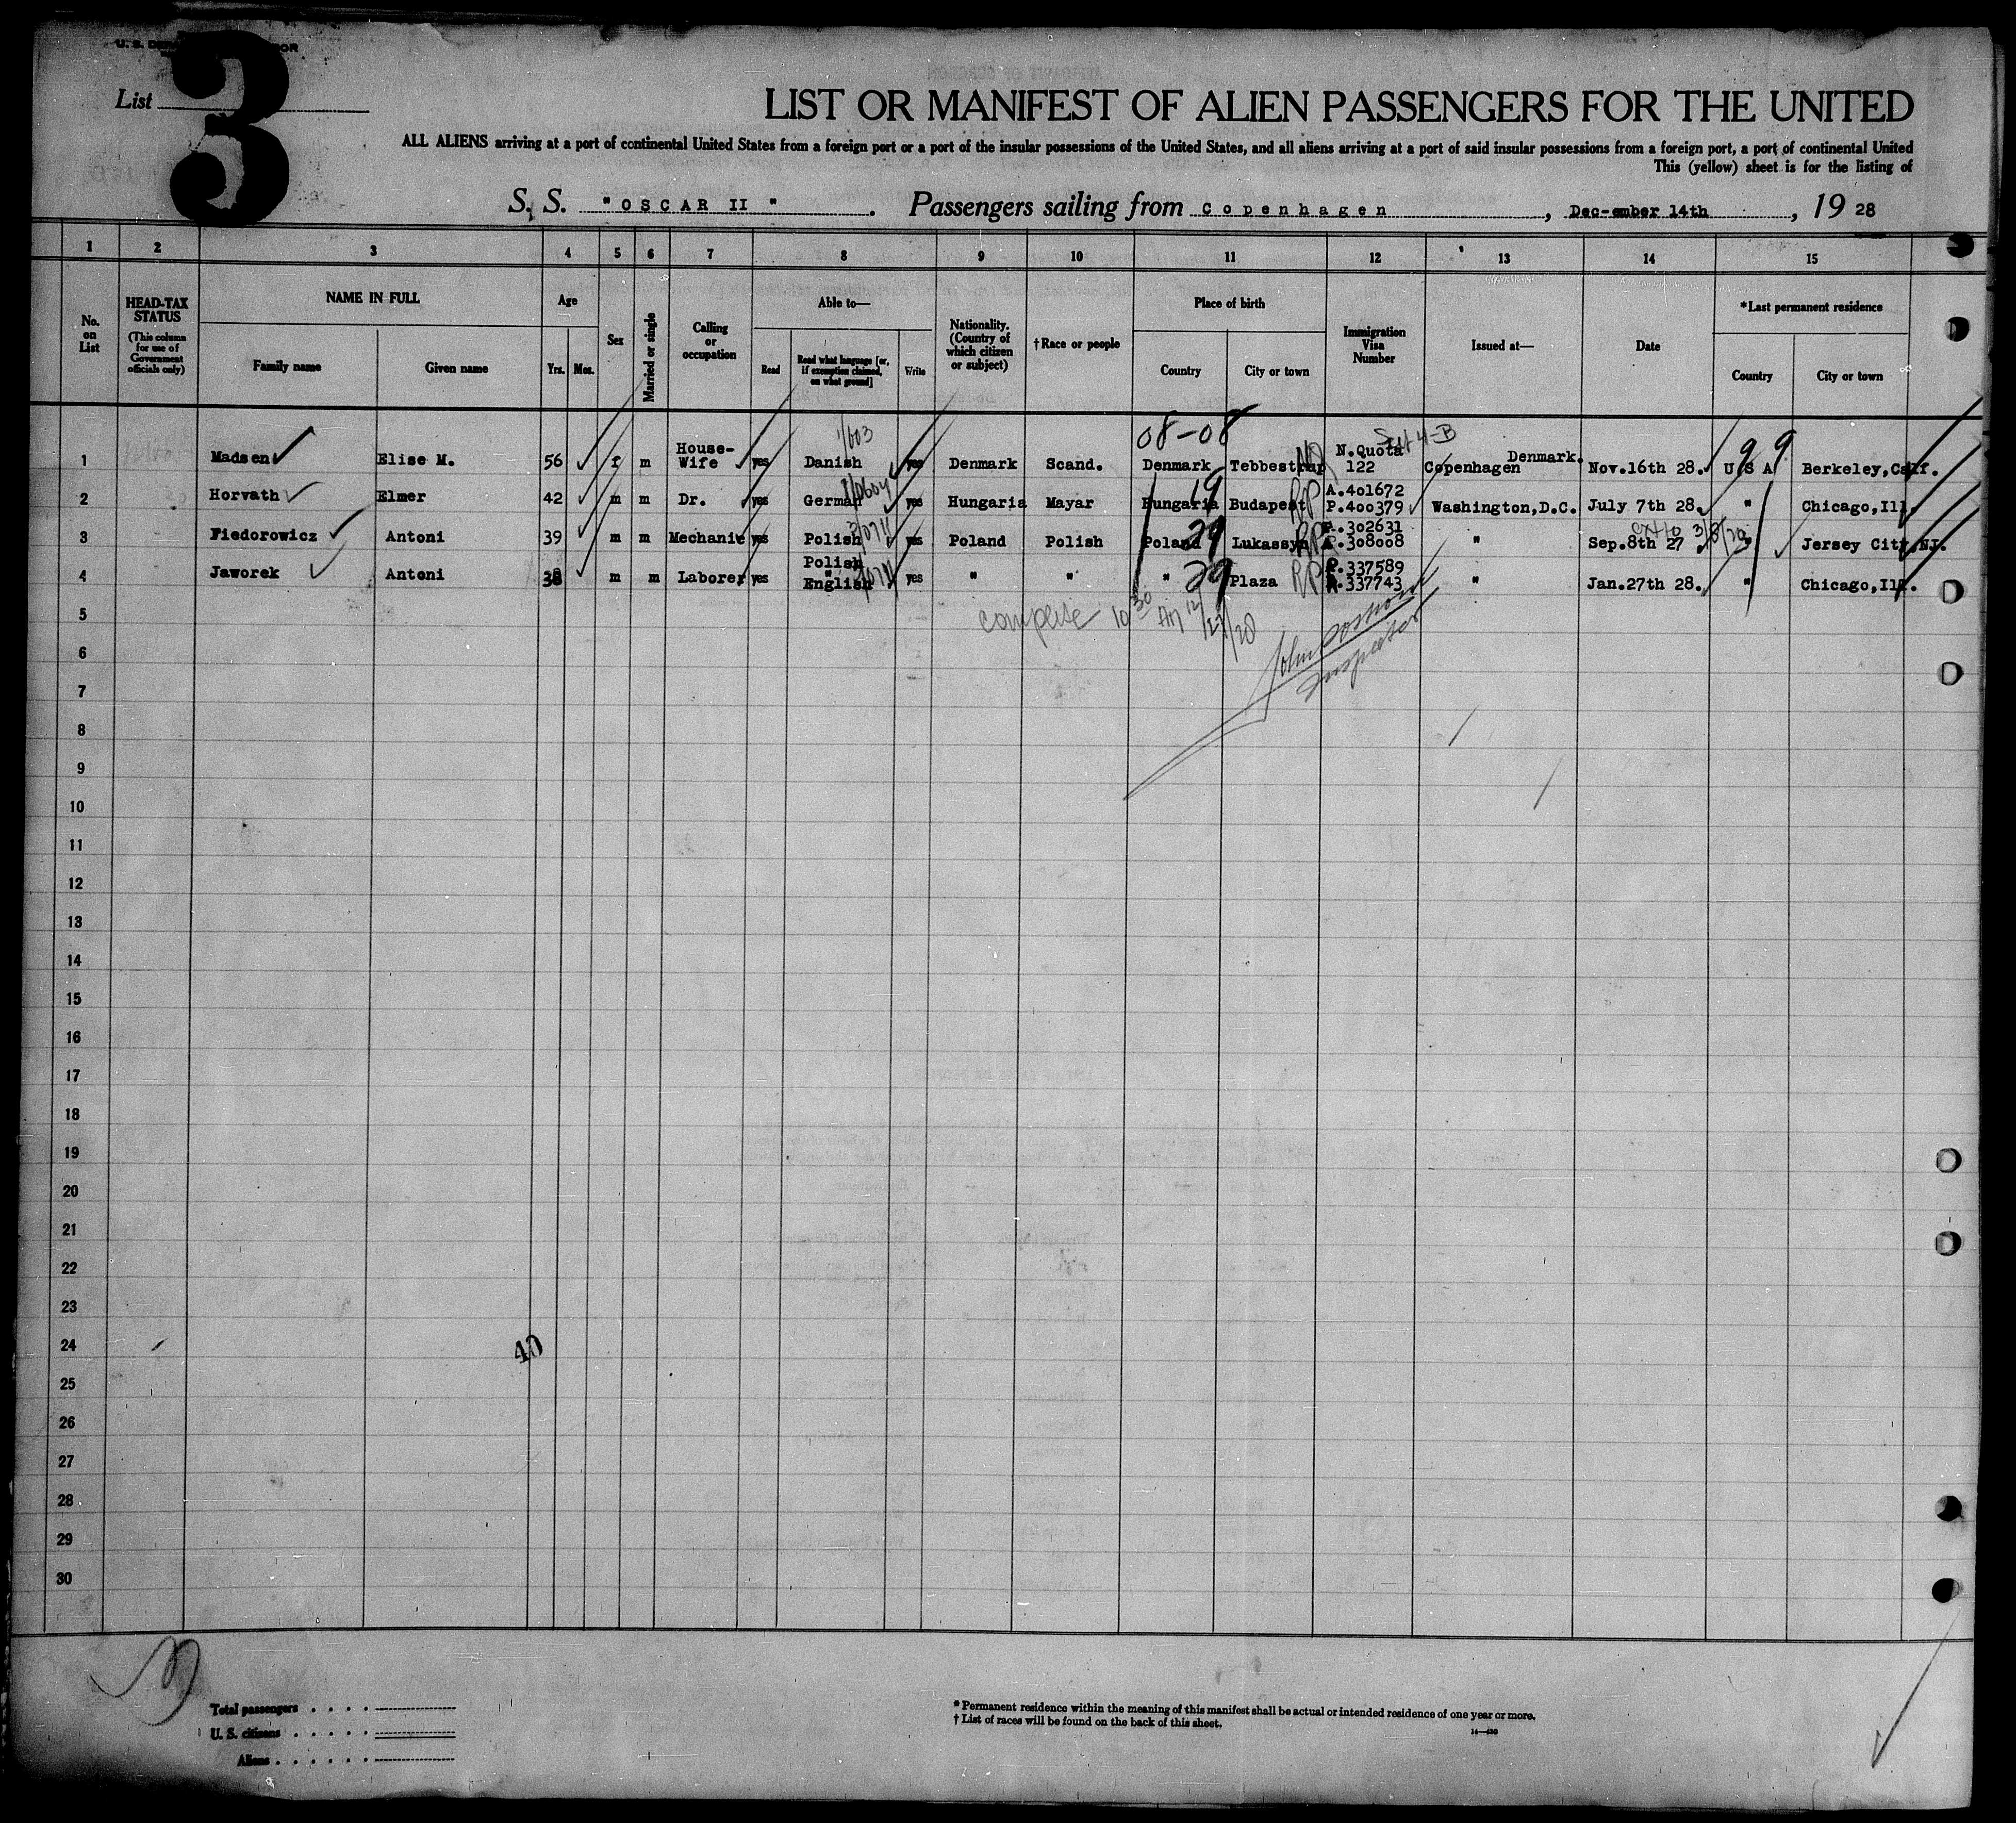 List
3
LIST OR MANIFEST OF ALIEN PASSENGERS FOR THE UNITED
ALL ALIENS arriving at a port of continental United States from a foreign port or a port of the insular possessions of the United States, and all aliens arriving at a port of said insular possessions from a foreign port, a port of continental United
This (yellow) sheet is for the listing of
S. S. "OSCAR II". Passengers sailing from Copenhagen, Dec-ember 14th, 19 28
1 2 3 4 5 6 7 8 9 10 11 12 13 14 15
No. on List
HEAD-TAX STATUS
(This column for use of Government officials only)
NAME IN FULL
Family name Given name
Age
Yrs. Mos.
Sex
Married or single
Calling or occupation
Able to—
Read Read what language [or, if exemption claimed, on what ground] Write
Nationality. (Country of which citizen or subject)
†Race or people
Place of birth
Country City or town
Immigration Visa Number
Issued at—
Date
*Last permanent residence
Country City or town
08-08
1 Madsen Elise M. 56 f m House-Wife yes Danish yes Denmark Scand. Denmark Tebbestrup N.Quota 122 Copenhagen Denmark. Nov.16th 28. U S A Berkeley, Calf.
2 Horvath Elmer 42 m m Dr. yes German yes Hungaria Mayar Hungaria Budapest RP A.401672 P.400379 Washington, D.C. July 7th 28. " Chicago, Ill.
3 Fiedorowicz Antoni 39 m m Mechanic yes Polish yes Poland Polish Poland Lukassyn RP 302631 308008 " Sep.8th 27 " Jersey City, NJ.
4 Jaworek Antoni 38 m m Laborer yes Polish English yes " " " Plaza RP P.337589 A.337743 " Jan.27th 28. " Chicago, Ill.
5
6
7
8
9
10
11
12
13
14
15
16
17
18
19
20
21
22
23
24
25
26
27
28
29
30
Inspector
40
Total passengers
U. S. citizens
Aliens
* Permanent residence within the meaning of this manifest shall be actual or intended residence of one year or more.
† List of races will be found on the back of this sheet.